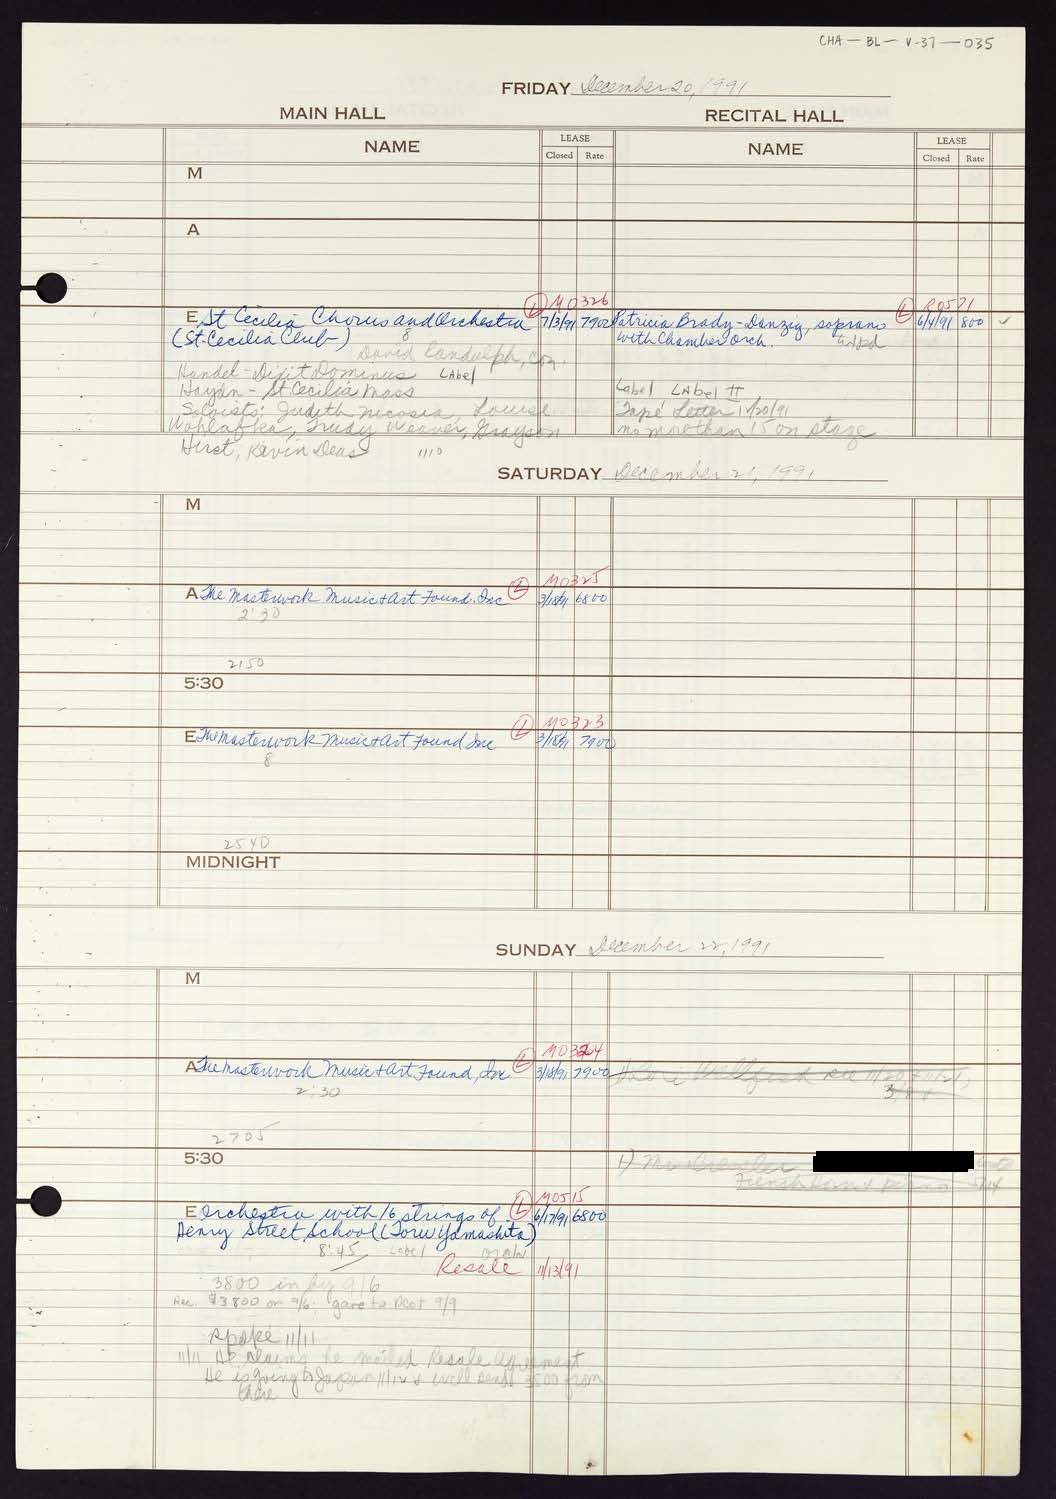 CHA - BL - V-37 - 035
FRIDAY December 20, 1991
MAIN HALL
RECITAL HALL
NAME
LEASE
Closed Rate
NAME
LEASE
Closed Rate
M
A
L M0326
L R0521
E St Cecilia Chorus and Orchestra 7/3/91 7900
Patricia Brady-Danzig, soprano 6/4/91 800 ✓
(St. Cecilia Club) 8
with Chamber Orch.
David Randolph, Con.
Handel - Dixit Dominus Label
Haydn - St Cecilia Mass
Label LAbel II
Soloists: Judith Nicosia, Louise
Tape Letter 11/20/91
Wohlafka, Trudy Weaver, Grayson
no more than 15 on stage
Hirst, Kevin Deas 1110
SATURDAY December 21, 1991
M
L M0325
A The Masterwork Music & Art Found. Inc 3/18/91 6800
2:30
2150
5:30
L M0323
E The Masterwork Music & Art Found Inc 3/18/91 7900
8
2540
MIDNIGHT
SUNDAY December 22, 1991
M
L M0324
A The Masterwork Music & Art Found, Inc 3/18/91 7900
2:30
2705
5:30
1) Mr
French Horn & piano
L M0515
E Orchestra with 16 strings of 6/17/91 6800
Henry Street School (Toru Yamashita)
8:45 Label
Resale 11/13/91
3800 in by 9/6
Rec. $3800 on 9/6; gave to Dept 9/9
Spoke 11/11
11/11 He claims he mailed Resale Agreement
He is going to Japan & will send 3500 from
there